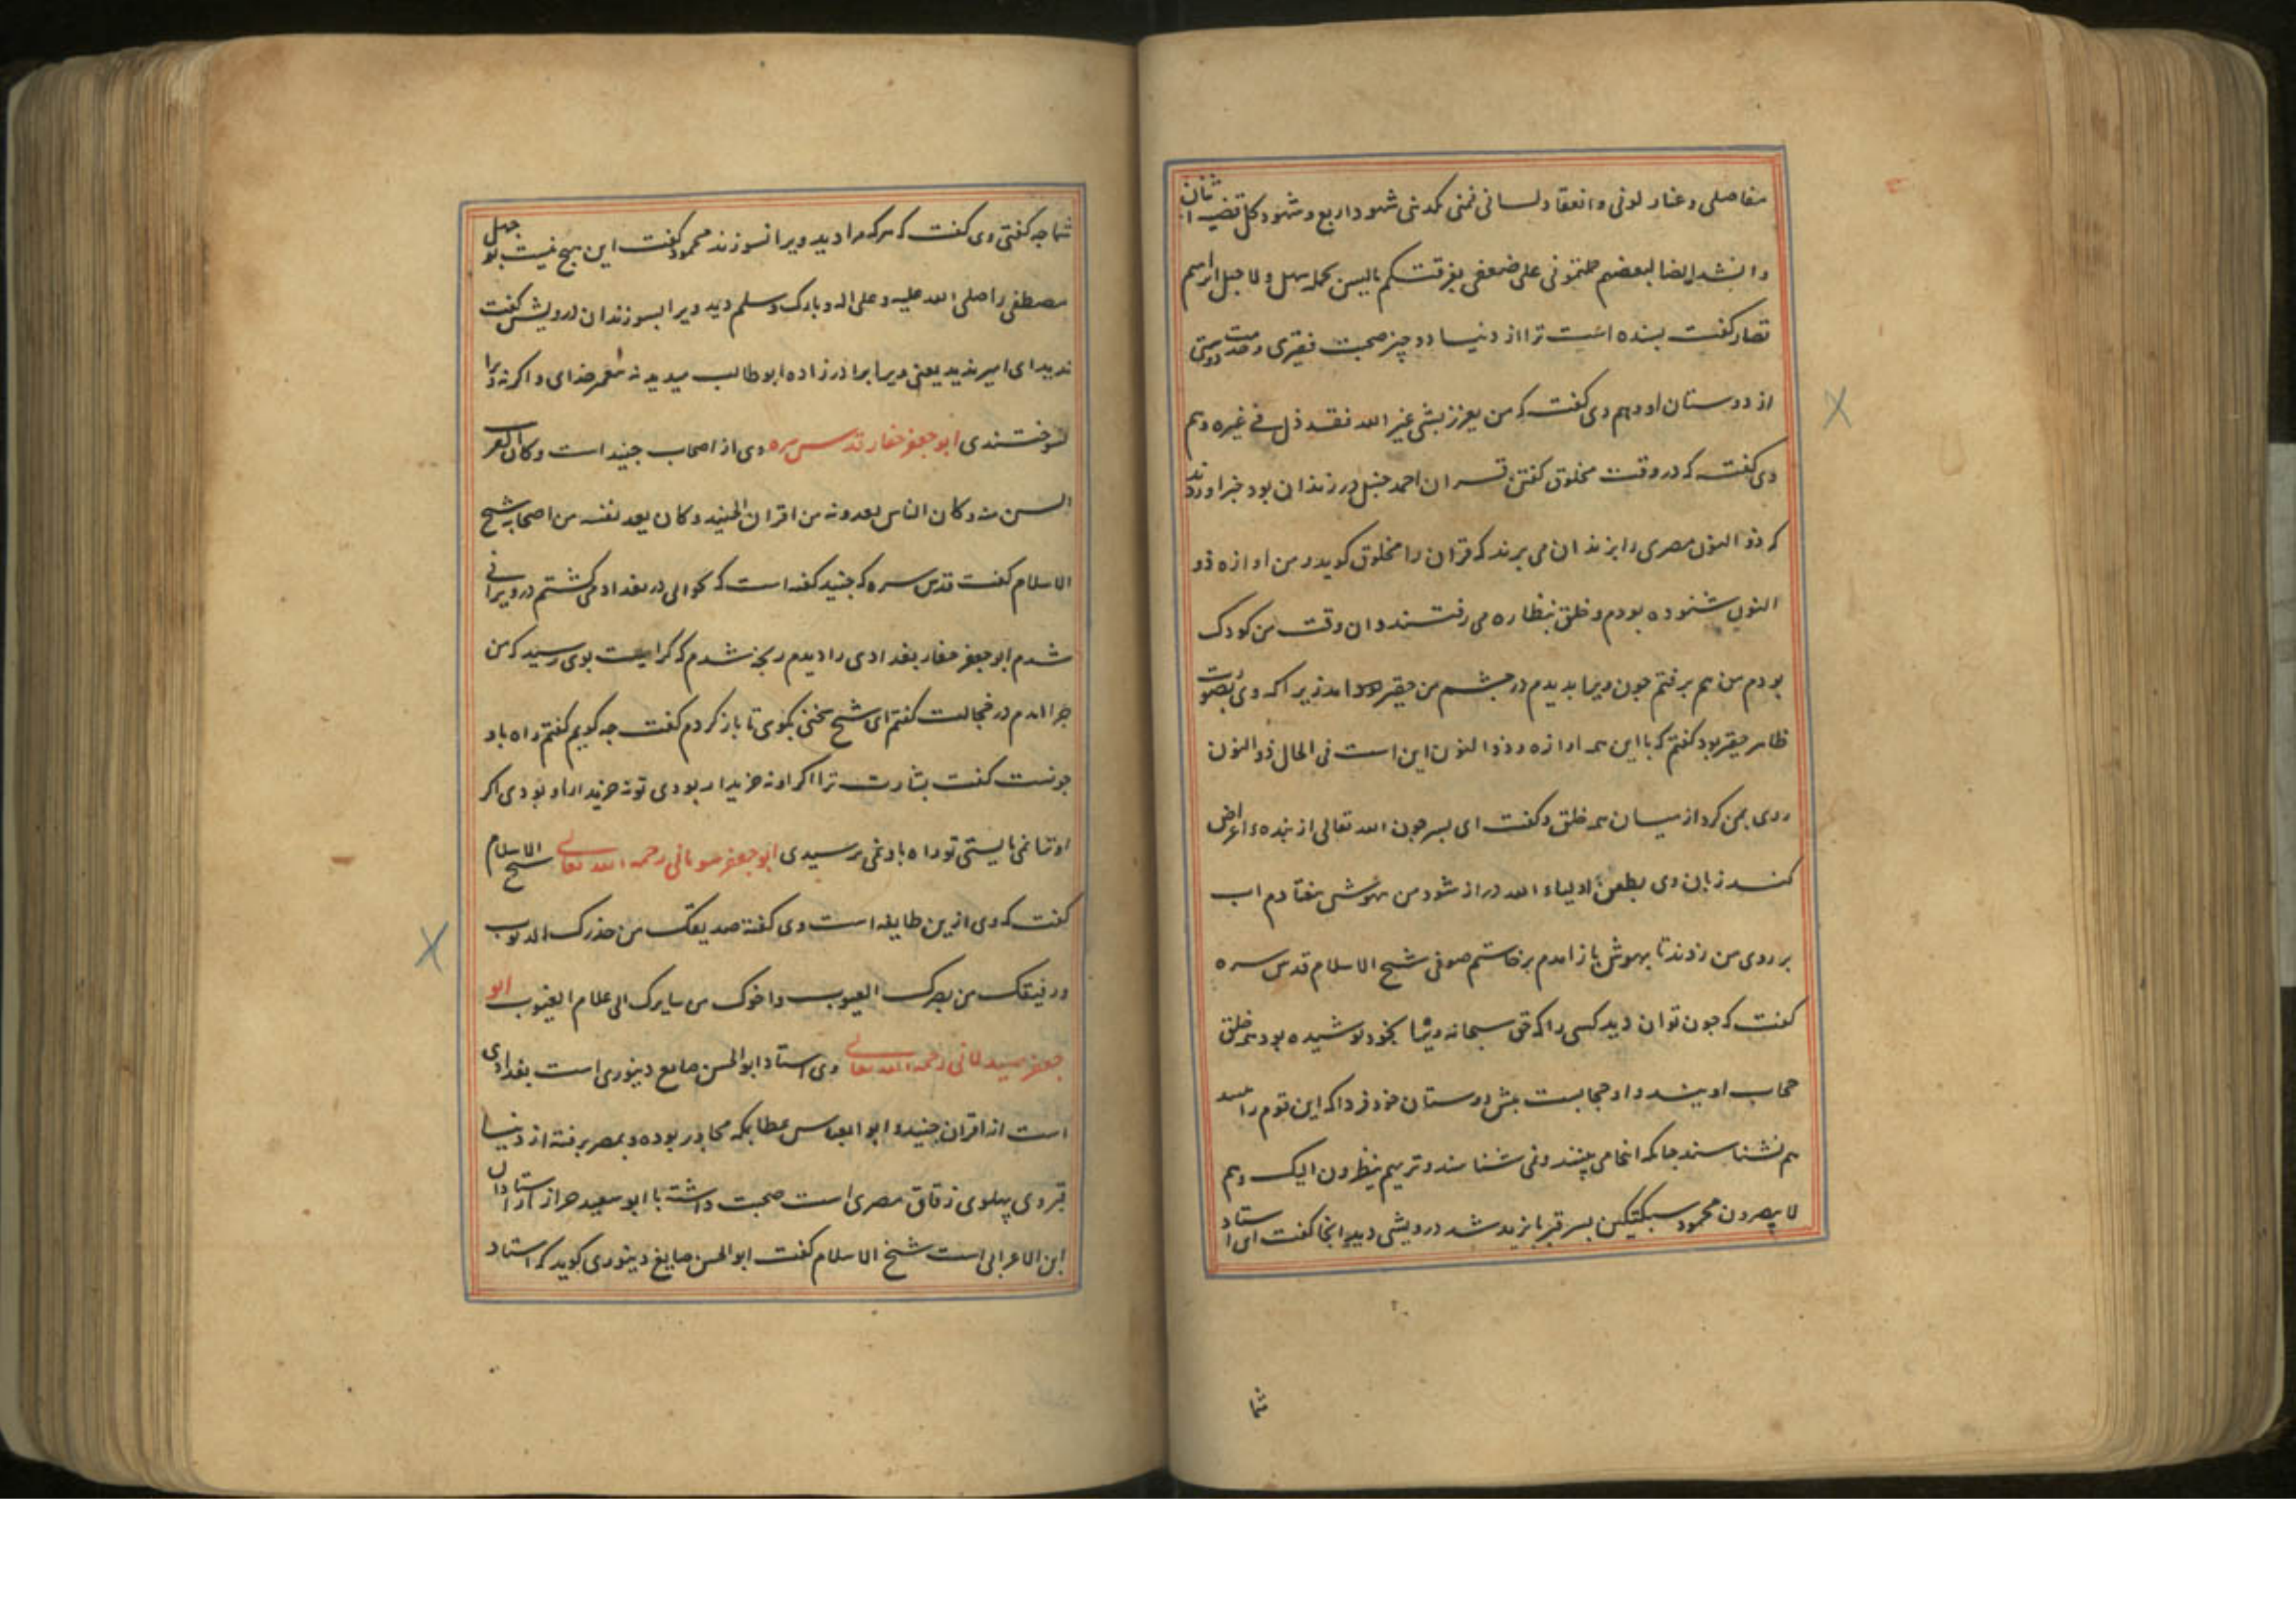 مفاصلی و غنار لونی وانعقاد لسانی فمنی کمدنی شهود اربع و شهود کل قضیه اثنان
وانشد ایضا لبعضهم حملتمونی علی ضعفی بفرقتکم مالیس یحمله سهل ولا جبل ابراهیم
قصار کفت بسنده است ترا از دنیا دو چیز صحبت فقیری و خدمت دوستی
از دوستان او وهم وی کفت که من یعزز بشی غیر الله فقد ذل فی غیره وهم
وی کفته که در وقت مخلوق کفتن قران احمد حنبل در زندان بود خبر اوردند
که ذو النون مصری را بزندان می برند که قران را مخلوق کوید و من اوازه ذو
النون شنوده بودم و خلق بنظاره می رفتند و ان وقت من کودک
بودم من هم برفتم جون ویرا بدیدم در جشم من حقیر امد زیرا که وی بصوت
ظاهر حقیر بود کفتم که با این همه اوازه ذو النون این است فی الحال ذو النون
روی بمن کرد از میان همه خلق و کفت ای بسر جون الله تعالی از بنده اعراض
کند زبان وی بطعن اولیاء الله دراز شود من بیهوش بیفتادم اب
بر روی من زدند تا بهوش باز امدم برخاستم صوفی شیخ الاسلام قدس سره
کفت که جون توان دید کسی را که حق سبحانه ویرا بخود پوشیده بود همه خلق
حجاب اویند و او حجابست بیش دوستان خود فردا که این قوم را بینند
هم نشناسند جنانکه اینجا می بینند و نمی شناسند و تریهم ینظرون الیک وهم
لا یبصرون محمود سبکتکین بسر قبر بایزید شد درویشی دید انجا کفت ای استاد
شما
شما جه کفتی وی کفت که هرکه مرا دید ویرا نسوزند محمود کفت این هیچ نیست بوجهل
مصطفی را صلی الله علیه و علی اله و بارک وسلم دید ویرا بسوزند ان درویش کفت
ندید ای امیر ندید یعنی ویرا برادرزاده ابوطالب میدید نه بیغمبر خدای و اکرنه ویرا
نسوختندی ابو جعفر حفار قدس سره وی از اصحاب جنید است و کان اکبر
السن منه و کان الناس یعدونه من اقران الجنید و کان یعد نفسه من اصحابه شیخ
الاسلام کفت قدس سره که جنید کفته است که در بغداد می کشتم در ویرانی
شدم ابو جعفر حفار بغدادی را دیدم رنجه شدم که کراهیت بوی رسید که من
جرا امدم در خجالت کفتم ای شیخ سخنی بکوی تا باز کردم کفت جه کویم کفتم راه باو
جونست کفت بشارت ترا اکر او نه خریدار بودی تو نه خریدار او بودی اکر
او ترا نمی بایستی تو راه باو نمی برسیدی ابو جعفر سومانی رحمه الله تعالی شیخ الاسلام
کفت که وی ازین طایفه است وی کفته صدیقک من حذرک الذنوب
ورفیقک من بصرک العیوب واخوک من سایرک الی علام الغیوب ابو
جعفر صیدلانی رحمه الله تعالی وی استاد ابو الحسن صایغ دینوری است بغدادی
است از اقران جنید و ابو العباس عطا بمکه مجاور بوده و بمصر برفته از دنیا
قبر وی پهلوی زقاق مصری است صحبت داشته با ابو سعید خراز از استادان
ابن الاعرابی است شیخ الاسلام کفت ابو الحسن صایغ دینوری کوید که استاد